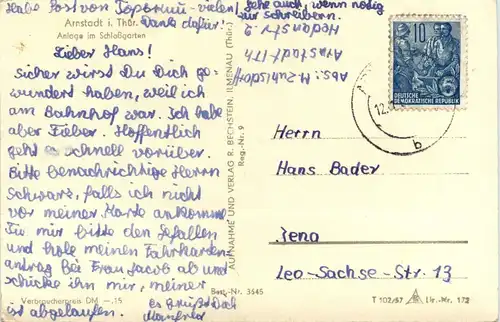 Habe Post von Toporum - vielen
Dank dafür!
Arnstadt i. Thür.
Anlage im Schloßgarten
Lieber Hans!
Sicher wirst Du Dich ge-
wundert haben, weil ich
am Bahnhof war. Ich habe
aber Fieber. Hoffentlich
geht es schnell vorüber.
Bitte benachrichtige Herrn
Schwarz, falls ich nicht
vor meiner Karte ankomme.
Tu mir bitte den Gefallen
und hole meinen Fahrkarten-
antrag bei Frau Jacob ab und
schicke ihn mir, meiner
ist abgelaufen.
es grüßt Dich
Manfred
Verbraucherpreis DM -,15
Best.-Nr. 3645
sehe auch, wenn nötig
zur Schreibern.
Abs.: M. Zuhlsdorf
Arnstadt/Th
AUFNAHME UND VERLAG R. BECHSTEIN, ILMENAU (THÜR.)
Reg.-Nr. 9
10
DEUTSCHE
DEMOKRATISCHE REPUBLIK
12.
b
Herrn
Hans Bader
Jena
Leo-Sachse-Str. 13
T 102/57
Liz.-Nr. 172